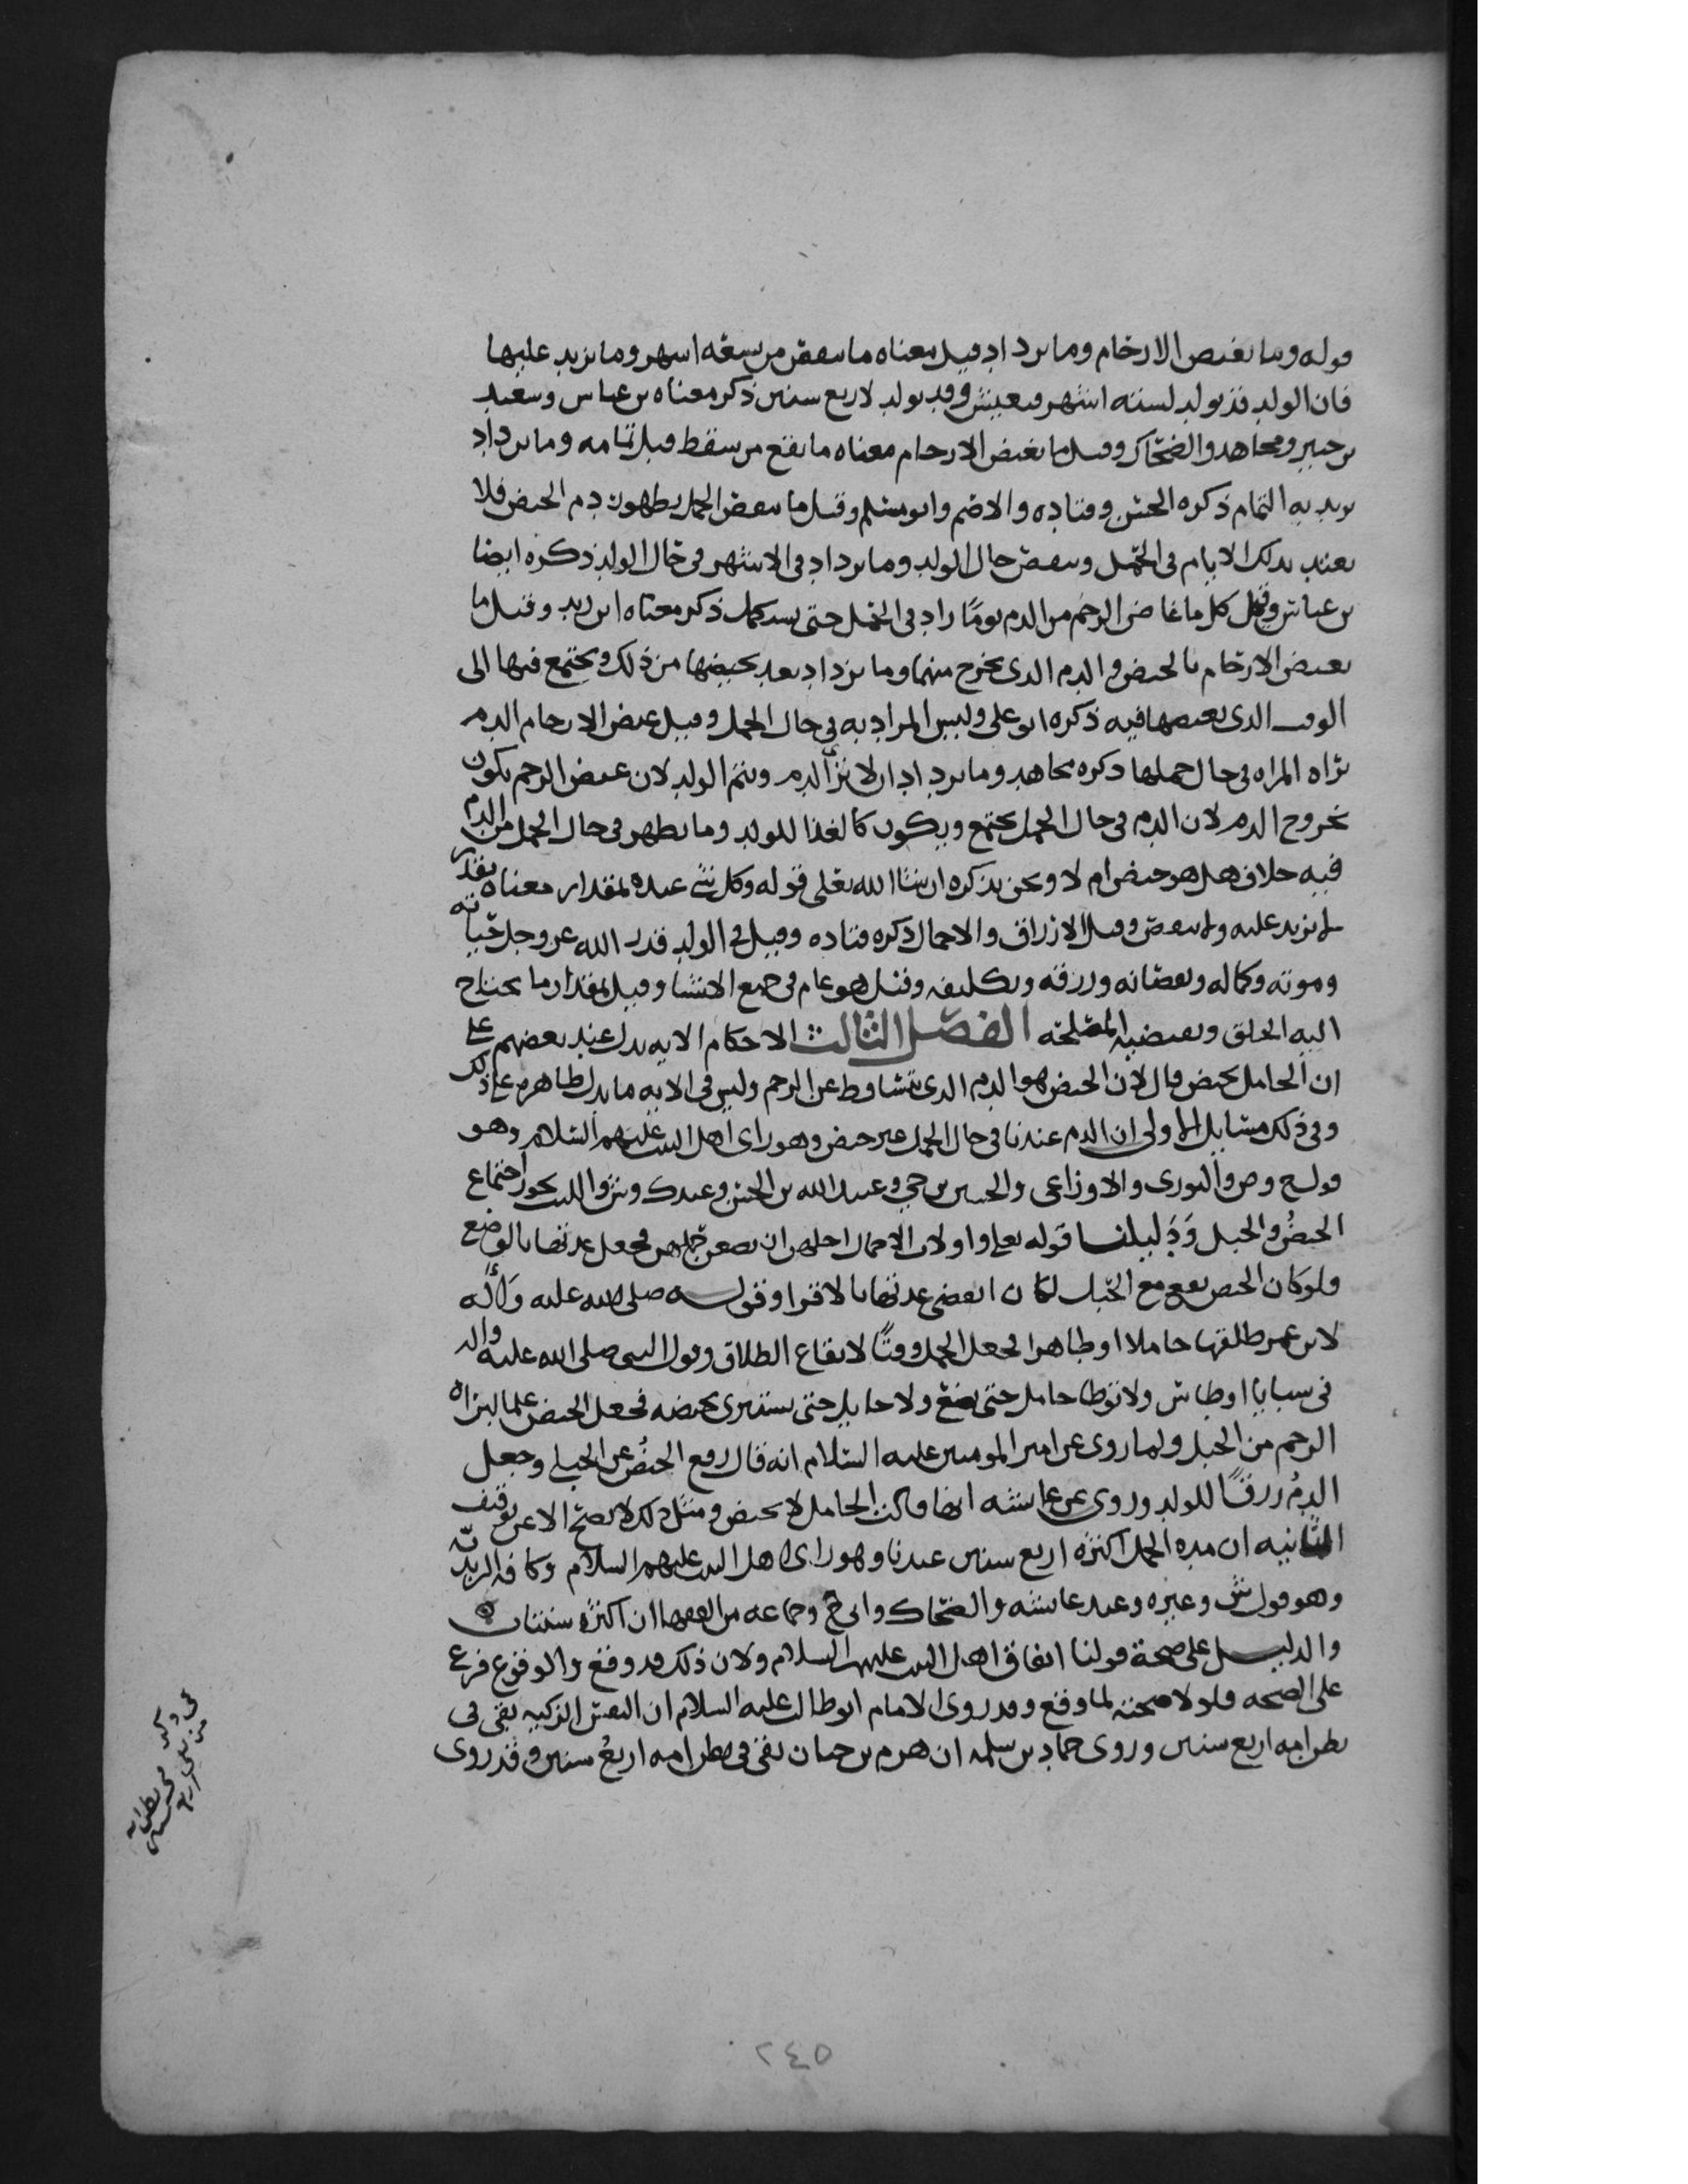 قوله وما تغيض الارحام وما تزداد قيل معناه ما ينقص من تسعة اشهر وما يزيد عليها
فان الولد قد يولد لستة اشهر فيعيش وقد يولد لاربع سنين ذكر معناه بن عباس وسعيد
بن جبير ومجاهد والضحاك وقيل ما تغيض الارحام معناه ما يقع من سقط قبل تمامه وما يزداد
يريد به التمام ذكره الحسن وقتاده والاصم وابو مسلم وقيل ما ينقص الحمل بظهور دم الحيض فلا
يعتد بذلك الايام في الحمل وينقص حال الولد وما يزداد في الاشهر في حال الولد ذكره ايضا
بن عباس وقيل كل ما غاض الرحم من الدم يوما زاد في الحمل حتى يستكمل ذكر معناه ابن زيد وقيل ما
تغيض الارحام بالحيض والدم الذي يخرج منها وما يزداد بعد تحيضها من ذلك ويجتمع فيها الى
الوقت الذي تحيضها فيه ذكره ابو على وليس المراد به في حال الحمل وقيل غيض الارحام الدم
تراه المراه في حال حملها ذكره مجاهد وما يزداد ان لا ترى الدم ويتم الولد لان غيض الرحم يكون
بخروج الدم لان الدم في حال الحمل يجتمع ويكون كالغذا للولد وما يظهر في حال الحمل من الدم
فيه خلاف هل هو حيض ام لا ونحن نذكره ان شا الله تعلى قوله وكل شي عنده بمقدار معناه بقدر
لا يزيد عليه ولا ينقص وقيل الارزاق والاجال ذكره قتاده وقيل في الولد قدر الله عز وجل حياته
وموته وكماله ونقصانه ورزقه وتكليفه وقيل هو عام في جميع الاشيا وقيل بمقدار ما يحتاج
اليه الخلق وتقتضيه المصلحه الفصل الثالث الاحكام الايه تدل عند بعضهم على
ان الحامل تحيض قال لان الحيض هو الدم الذي يتساقط عن الرحم وليس في الايه ما يدل بظاهره على ذلك
وفي ذلك مسايل الاولى ان الدم عندنا في حال الحمل غير حيض وهو راي اهل البيت عليهم السلام وهو
قول ح وص والثوري والاوزاعي والحسن بن حي وعبيد الله بن الحسن وعند ك وش والليث يجوز اجتماع
الحيض والحبل ودليلنا قوله تعلى واولات الاحمال اجلهن ان يضعن حملهن فجعل عدتها بالوضع
ولو كان الحيض يقع مع الحبل لكان انقضى عدتها بالاقرا وقوله صلى الله عليه وآله
لابن عمر طلقها حاملا او طاهرا فجعل الحمل وقتا لايقاع الطلاق وقول النبي صلى الله عليه واله
في سبايا اوطاس ولا توطا حامل حتى تضع ولا حايل حتى تستبرى بحيضه فجعل الحيض علما لبراه
الرحم من الحبل ولما روى عن امير المومنين عليه السلام انه قال رفع الحيض عن الحبلى وجعل
الدم رزقا للولد وروى عن عايشه انها قالت الحامل لا تحيض ومثل ذلك لا يصح الا عن توقيف
الثانيه ان مده الحمل اكثره اربع سنين عندنا وهو راي اهل البيت عليهم السلام وكافه الزيديه
وهو قول ش وغيره وعند عايشه والضحاك وابي ح وجماعه من الفقها ان اكثره سنتان
والدليل على صحة قولنا اتفاق اهل البيت عليهم السلام ولان ذلك قد وقع والوقوع فرع
على الصحه فلولا صحته لما وقع وقد روى الامام ابو طالب عليه السلام ان النفس الزكيه بقي في
بطن امه اربع سنين وروى حماد بن سلمه ان هرم بن حيان بقي في بطن امه اربع سنين وقد روى
٢٤٥